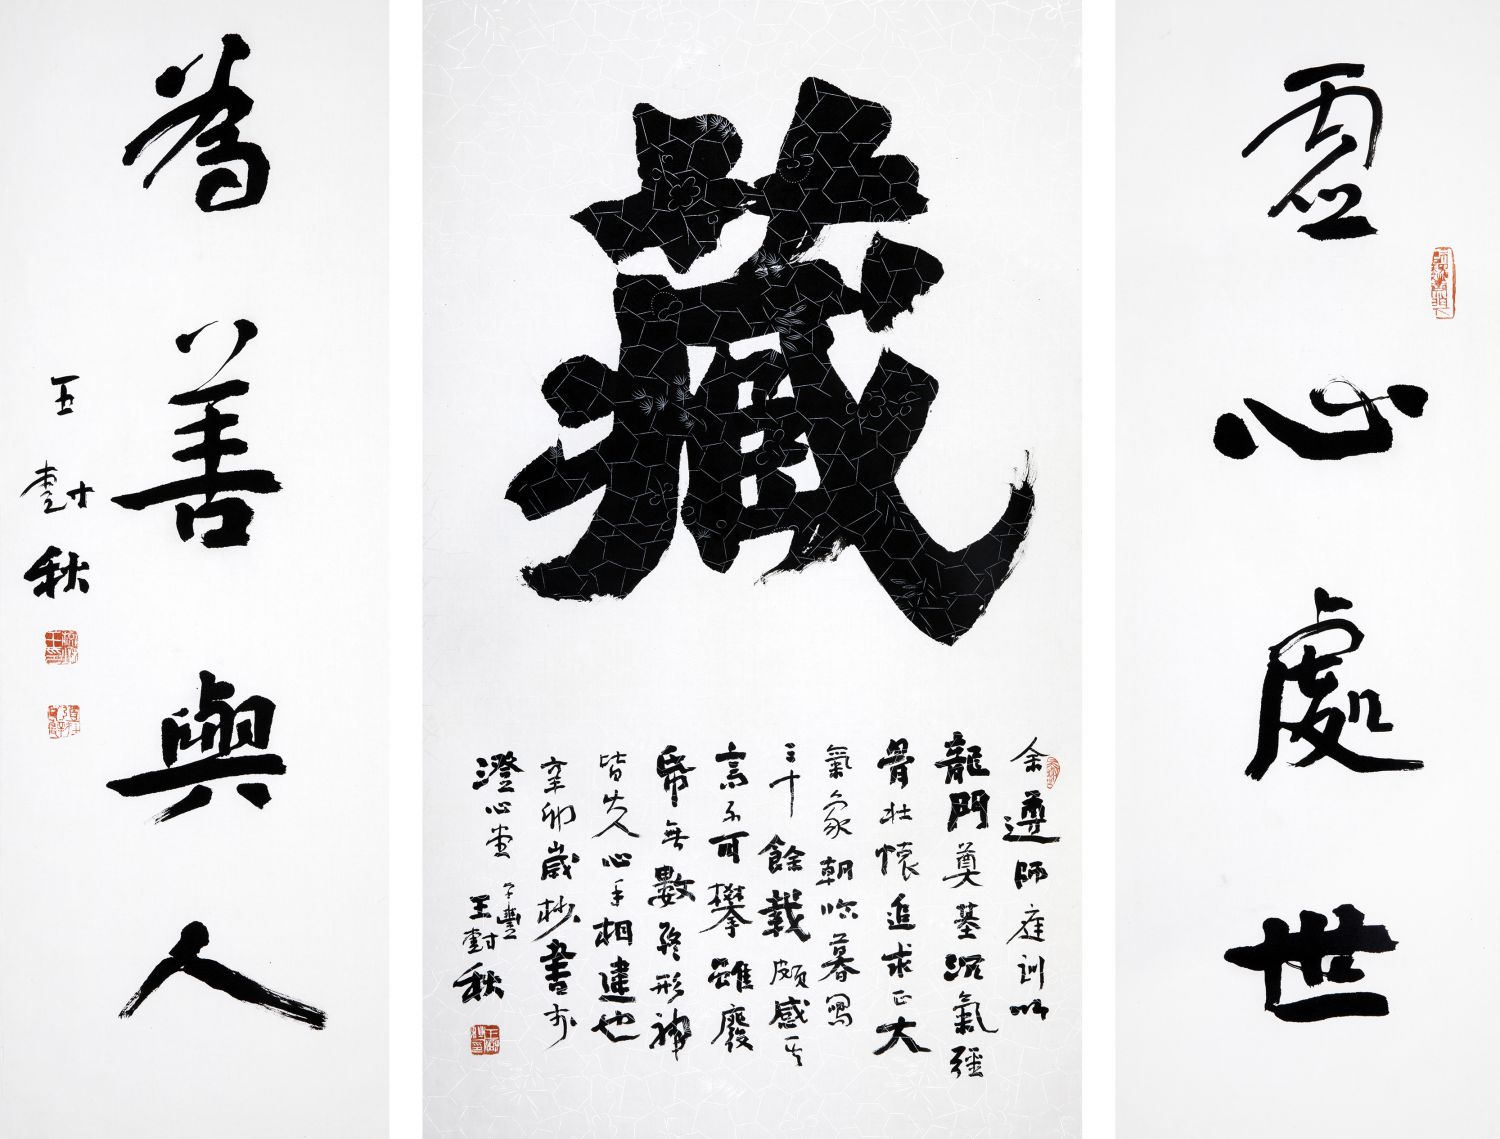 虛心處世
藏
余遵師庭訓以
龍門奠基沉氣經
骨壯懷追求正大
氣象朝臨暮寫
三十餘載頗感其
高不可攀雖廢
帋無數終形神
皆失人心手相違也
辛卯歲杪書於
澄心堂
王對秋
為善與人
王對秋